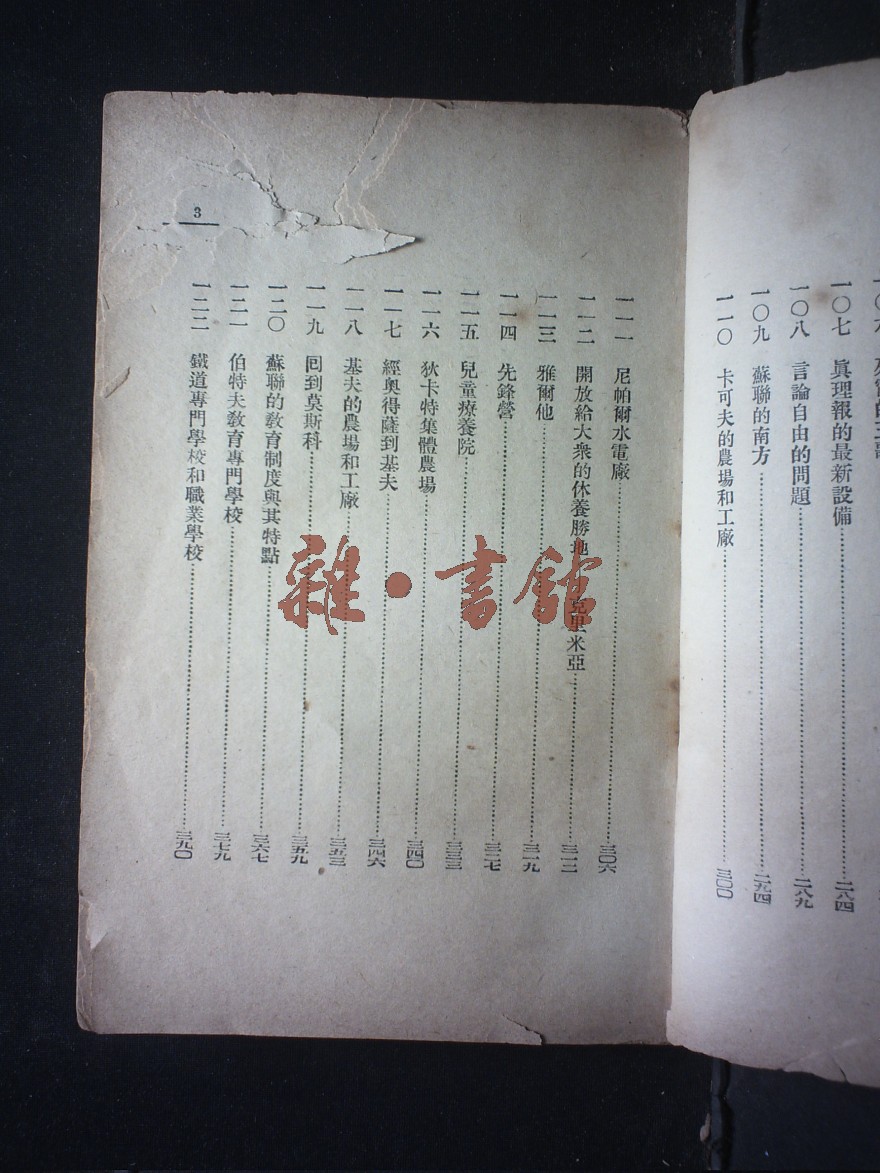 一〇七 眞理報的最新設備……二八四
一〇八 言論自由的問題……二八九
一〇九 蘇聯的南方……二九四
一一〇 卡可夫的農場和工廠……三〇〇
3
一一一 尼帕爾水電廠……三〇六
一一二 開放給大衆的休養勝地 克里米亞……三一二
一一三 雅爾他……三一九
一一四 先鋒營……三二七
一一五 兒童療養院……三三三
一一六 狄卡特集體農場……三四〇
一一七 經奧得薩到基夫……三四六
一一八 基夫的農場和工廠……三五三
一一九 回到莫斯科……三五九
一二〇 蘇聯的敎育制度與其特點……三六七
一二一 伯特夫敎育專門學校……三七九
一二二 鐵道專門學校和職業學校……三九〇
雜·書館